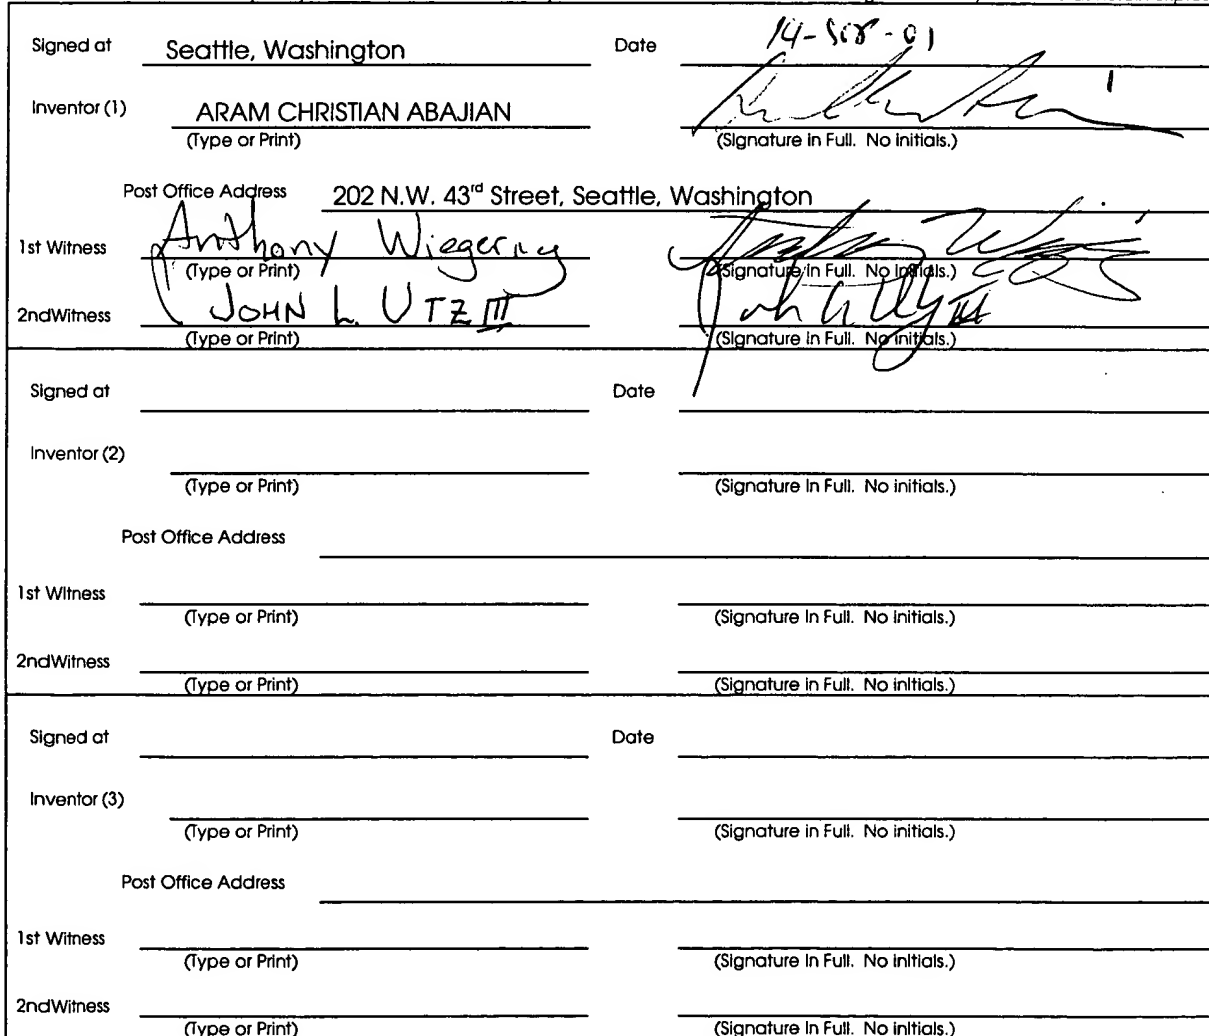 Signed at Seattle, Washington Date 14-SEP-01
Inventor (1) ARAM CHRISTIAN ABAJIAN
(Type or Print) (Signature in Full. No initials.)
Post Office Address 202 N.W. 43rd Street, Seattle, Washington
1st Witness Anthony
(Type or Print) (Signature in Full. No initials.)
2ndWitness JOHN L. UTZ III
(Type or Print) (Signature in Full. No initials.)
Signed at Date
Inventor (2)
(Type or Print) (Signature in Full. No initials.)
Post Office Address
1st Witness
(Type or Print) (Signature in Full. No initials.)
2ndWitness
(Type or Print) (Signature in Full. No initials.)
Signed at Date
Inventor (3)
(Type or Print) (Signature in Full. No initials.)
Post Office Address
1st Witness
(Type or Print) (Signature in Full. No initials.)
2ndWitness
(Type or Print) (Signature in Full. No initials.)